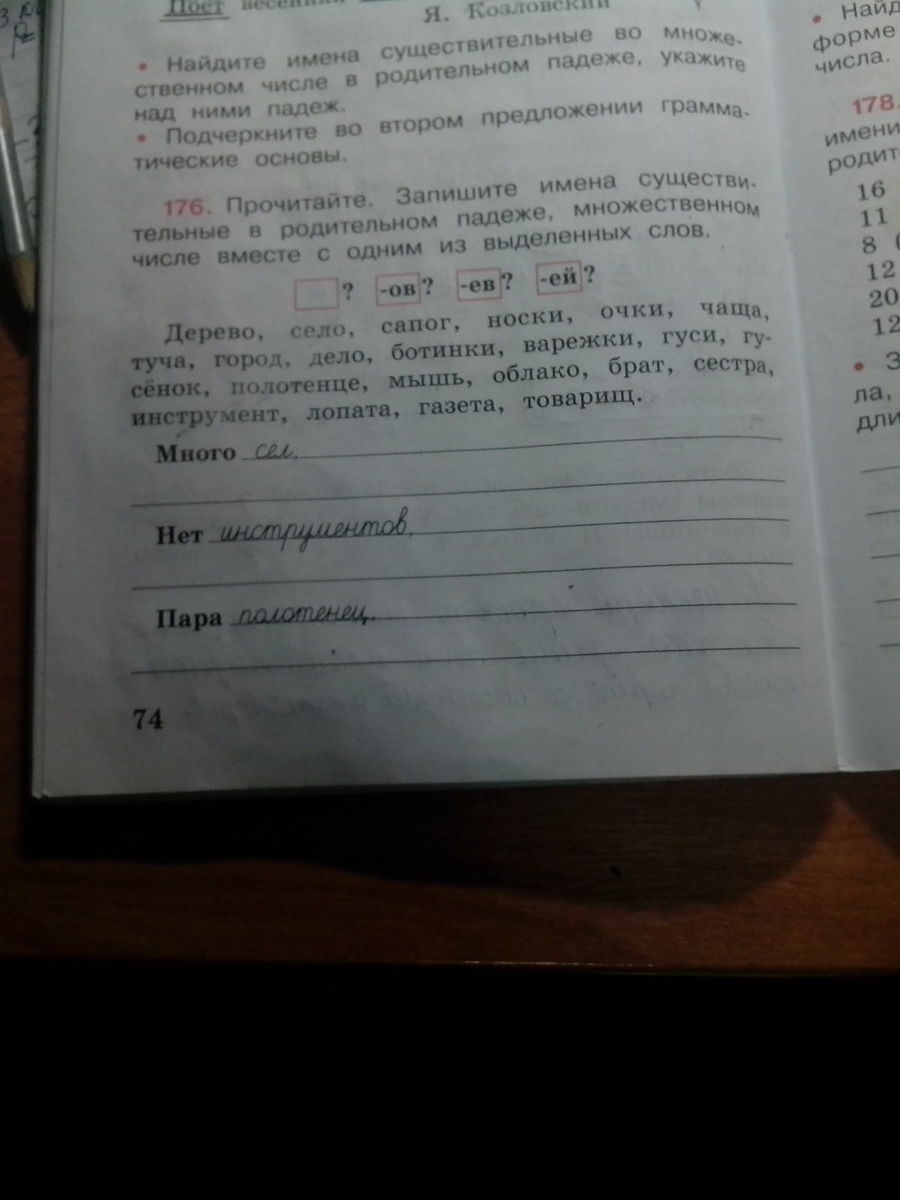 Поёт весенняя
Я. Козловский
• Найдите имена существительные во множе-
ственном числе в родительном падеже, укажите
над ними падеж.
• Подчеркните во втором предложении грамма-
тические основы.
176. Прочитайте. Запишите имена существи-
тельные в родительном падеже, множественном
числе вместе с одним из выделенных слов.
? -ов? -ев? -ей?
Дерево, село, сапог, носки, очки, чаща,
туча, город, дело, ботинки, варежки, гуси, гу-
сёнок, полотенце, мышь, облако, брат, сестра,
инструмент, лопата, газета, товарищ.
Много сел.
Нет инструментов.
Пара полотенец.
74
• Найд
форме
числа.
178.
имени
родит
16
11
8 (
12
20
12
• З
ла,
дли